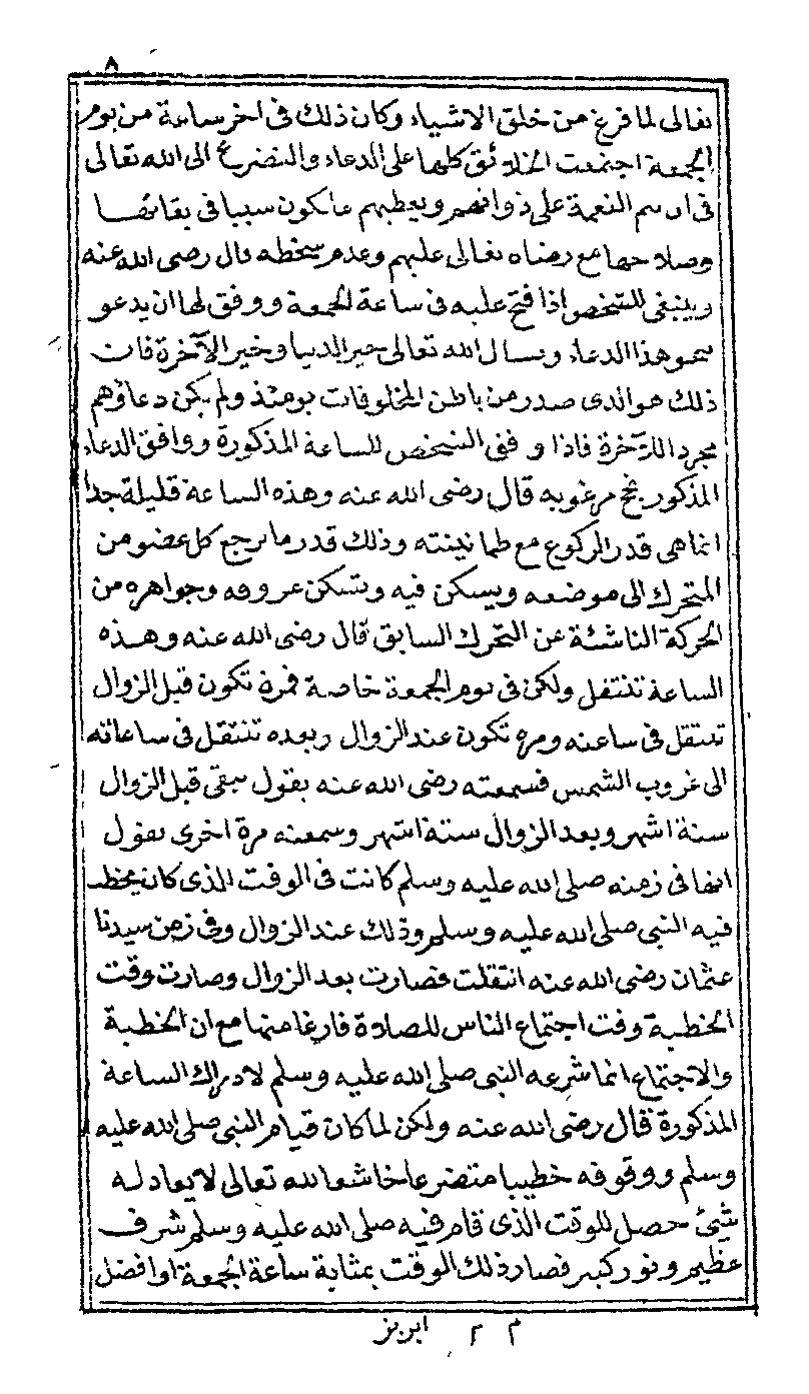 ٨
تعالى لما فرغ من خلق الاشياء وكان ذلك فى اخر ساعة من يوم
الجمعة اجتمعت الخلائق كلها على الدعاء والتضرع الى الله تعالى
فى ان يتم النعمة على ذواتهم ويعطيهم ما يكون سببا فى بقائها
وصلاحها مع رضاه تعالى عليهم وعدم سخطه قال رضى الله عنه
وينبغى للشخص اذا فتح عليه فى ساعة الجمعة ووفق لها ان يدعو
بنحو هذا الدعاء ويسال الله تعالى خير الدنيا وخير الآخرة فان
ذلك هو الذى صدر من باطن المخلوقات يومئذ ولم يكن دعاؤهم
مجرد الآخرة فاذا وفق الشخص للساعة المذكورة ووافق الدعاء
المذكور نجح مرغوبه قال رضى الله عنه وهذه الساعة قليلة جدا
انما هى قدر الركوع مع طمانينته وذلك قدر ما يرجع كل عضو من
المتحرك الى موضعه ويسكن فيه وتسكن عروقه وجواهره من
الحركة الناشئة عن التحرك السابق قال رضى الله عنه وهذه
الساعة تنتقل ولكن فى يوم الجمعة خاصة فمرة تكون قبل الزوال
تنتقل فى ساعته ومرة تكون عند الزوال وبعده تنتقل فى ساعاته
الى غروب الشمس فسمعته رضى الله عنه يقول تبقى قبل الزوال
ستة اشهر وبعد الزوال ستة اشهر وسمعته مرة اخرى يقول
انها فى زمنه صلى الله عليه وسلم كانت فى الوقت الذى كان يخطب
فيه النبى صلى الله عليه وسلم وذلك عند الزوال وفى زمن سيدنا
عثمان رضى الله عنه انتقلت فصارت بعد الزوال وصارت وقت
الخطبة وقت اجتماع الناس للصلاة فارغا منها مع ان الخطبة
والاجتماع انما شرعه النبى صلى الله عليه وسلم لادراك الساعة
المذكورة قال رضى الله عنه ولكن لما كان قيام النبى صلى الله عليه
وسلم ووقوفه خطيبا متضرعا خاشعا لله تعالى لا يعادله
شئ حصل للوقت الذى قام فيه صلى الله عليه وسلم شرف
عظيم ونور كبير فصار ذلك الوقت بمثابة ساعة الجمعة او افضل
م ٢ ابريز